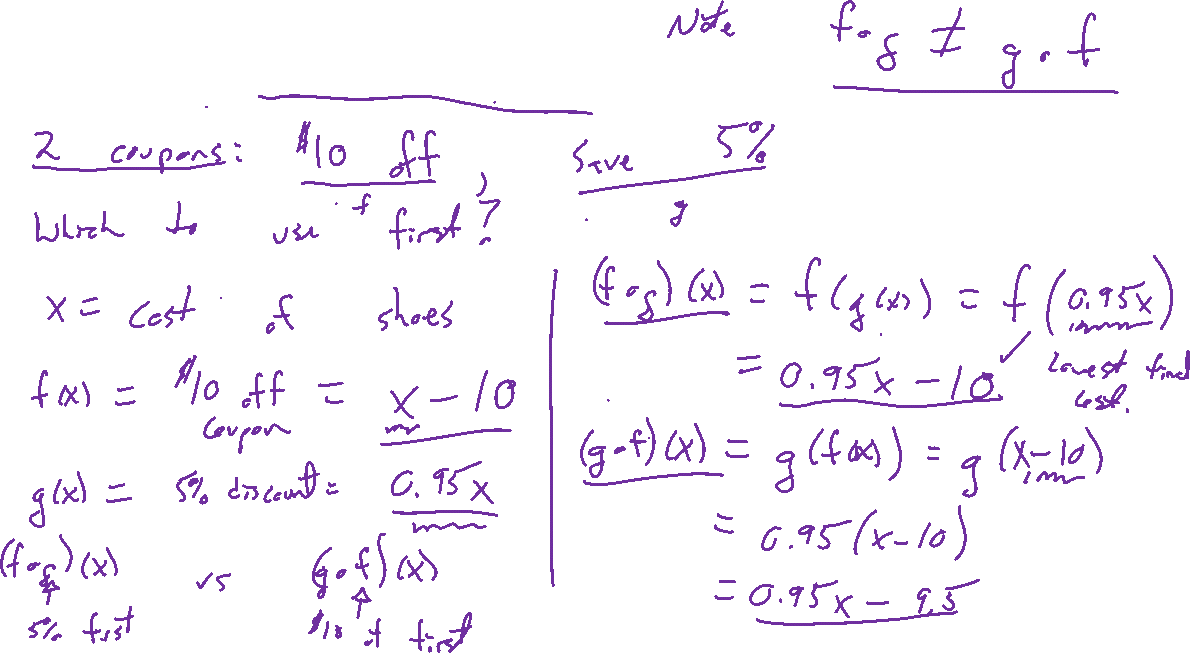 Note f∘g ≠ g∘f
2 coupons: $10 off, Save 5%
f g
Which to use first?
x = cost of shoes
f(x) = $10 off = x - 10
coupon
g(x) = 5% discount = 0.95x
(f∘g)(x) vs (g∘f)(x)
5% first $10 off first
(f∘g)(x) = f(g(x)) = f(0.95x)
= 0.95x - 10. ✓ Lowest final
cost.
(g∘f)(x) = g(f(x)) = g(x-10)
= 0.95(x-10)
= 0.95x - 9.5